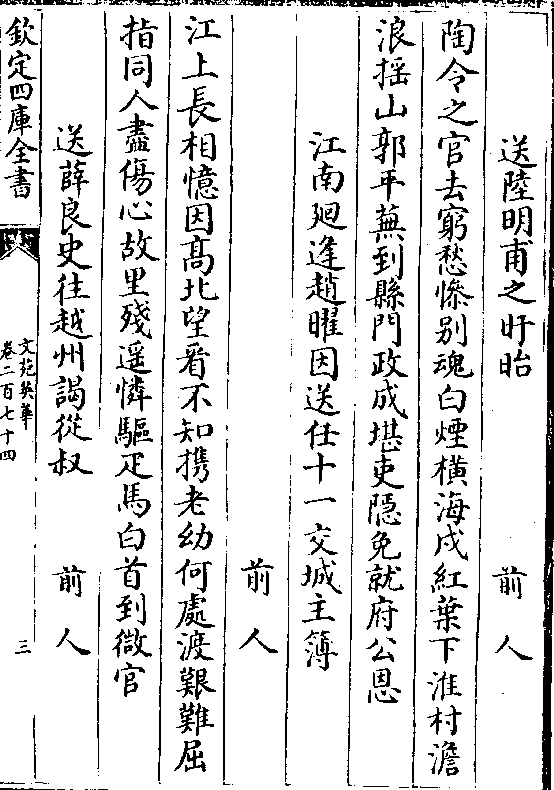 送陸明甫之盱眙　前人
陶令之官去窮愁慘别魂白煙橫海戍紅葉下淮村澹
浪摇山郭平蕪到縣門政成堪吏隠免就府公恩
江南廻逢趙曜因送任十一交城主簿
前人
江上長相憶因髙北望看不知携老幼何處渡艱難屈
指同人盡傷心故里殘遥憐驅疋馬白首到微官
送薛良史往越州謁從叔　前人
欽定四庫全書
文苑英華
卷二百七十四
三